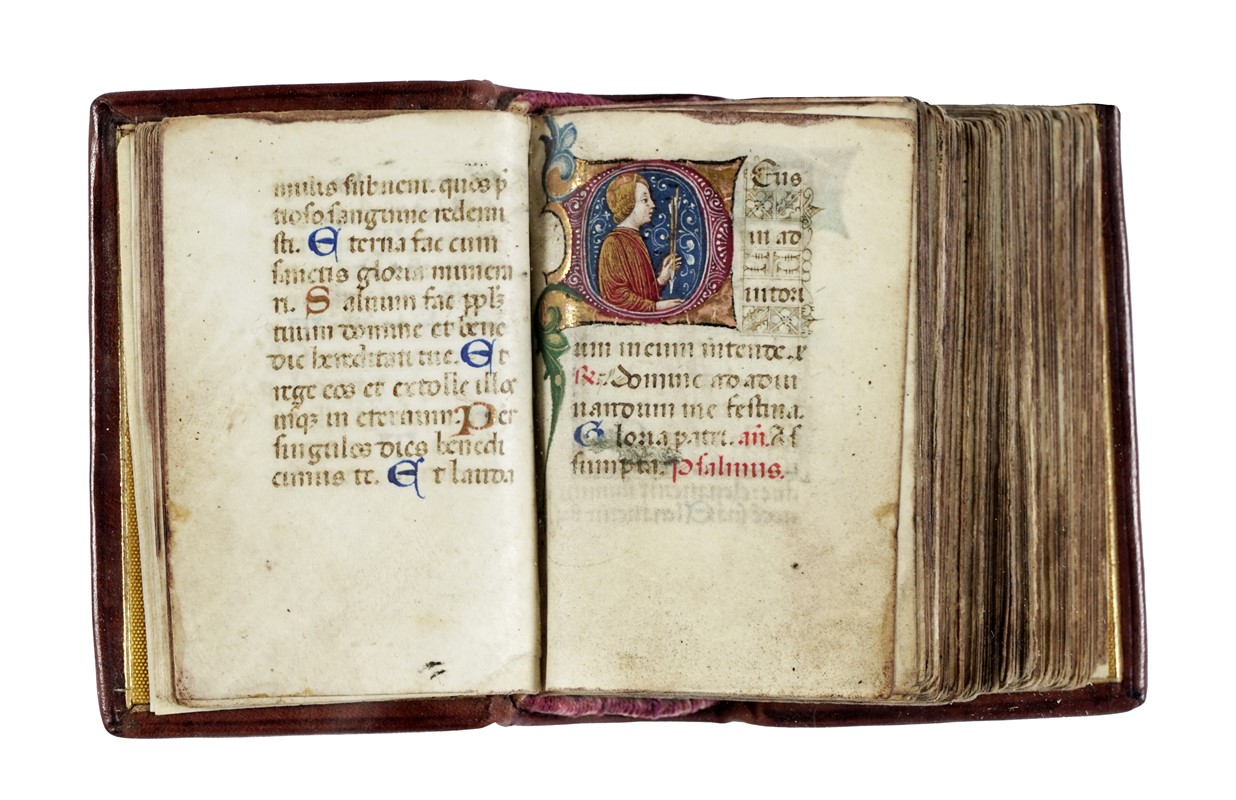 mulis subueni. quos p̄
tioso sanguine redemi
sti. Eterna fac cum
sanctis gloria munera
ri. Saluum fac pplꝫ
tuum domine et bene
dic hereditati tue. Et
rege eos et extolle illos
usqꝫ in eternum. Per
singulos dies benedi
cimus te. Et lauda
Deus
in ad
iutori
um meum intende. et
℟. Domine ad adiu
uandum me festina.
Gloria patri. añ. As
sumpta. Psalmus.